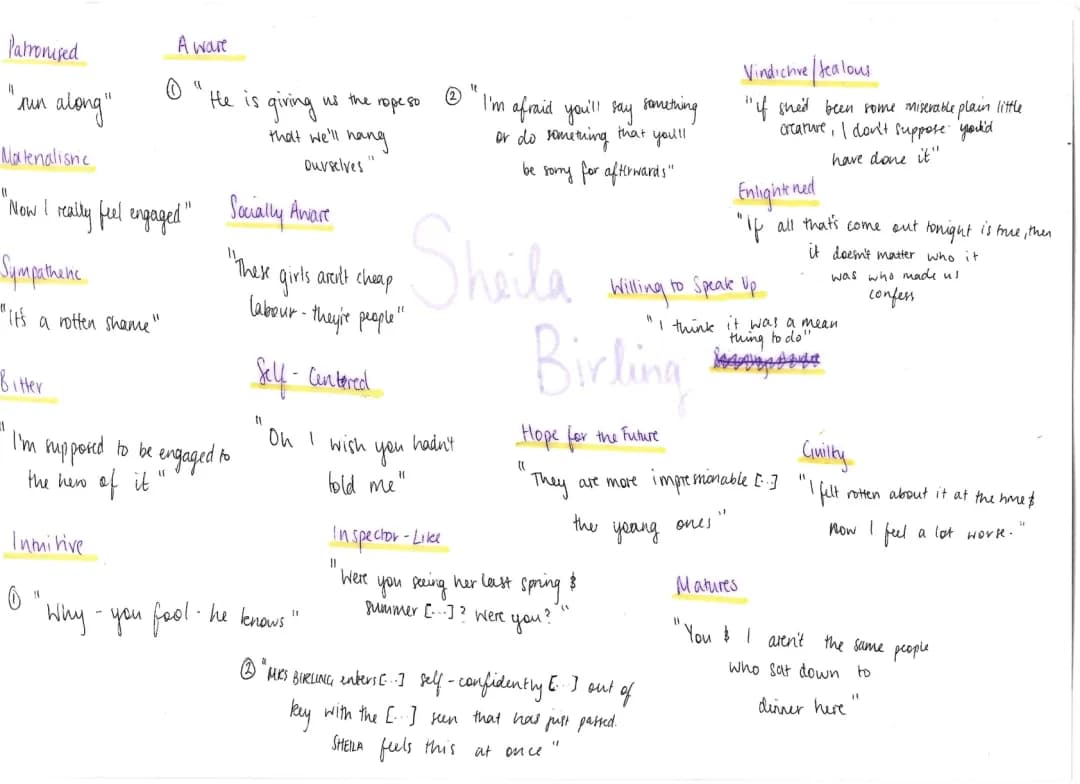 Sheila
Birling
Patronised
"run along"
Materialistic
"Now I really feel engaged"
Sympathetic
"It's a rotten shame"
Bitter
"I'm supposed to be engaged to
the hero of it"
Intuitive
① "Why - you fool - he knows"
② "MRS BIRLING enters [...] self-confidently [...] out of
key with the [...] seen that has just passed.
SHEILA feels this at once"
Aware
① "He is giving us the rope so
that we'll hang
ourselves"
② "I'm afraid you'll say something
or do something that you'll
be sorry for afterwards"
Socially Aware
"These girls aren't cheap
labour - they're people"
Self-Centered
"Oh I wish you hadn't
told me"
Inspector-Like
"Were you seeing her last spring &
summer [...]? Were you?"
Vindictive/Jealous
"if she'd been some miserable plain little
creature, I don't suppose you'd
have done it"
Enlightened
"If all that's come out tonight is true, then
it doesn't matter who it
was who made us
confess
Willing to Speak Up
"I think it was a mean
thing to do"
Hope for the Future
"They are more impressionable [..]
the young ones"
Guilty
"I felt rotten about it at the time &
now I feel a lot worse."
Matures
"You & I aren't the same people
who sat down to
dinner here"